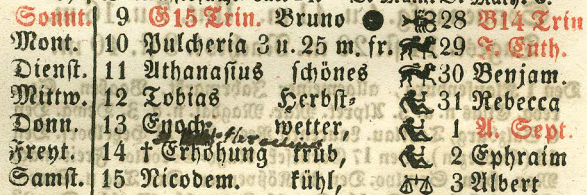 Sonnt. 9 G15 Trin. Bruno 28 B14 Trin
Mont. 10 Pulcheria 3 u. 25 m. fr. 29 J. Enth.
Dienst. 11 Athanasius schönes 30 Benjam.
Mittw. 12 Tobias Herbst- 31 Rebecca
Donn. 13 Enoch wetter, 1 A. Sept.
Freyt. 14 † Erhöhung trüb, 2 Ephraim
Samst. 15 Nicodem. kühl, 3 Albert